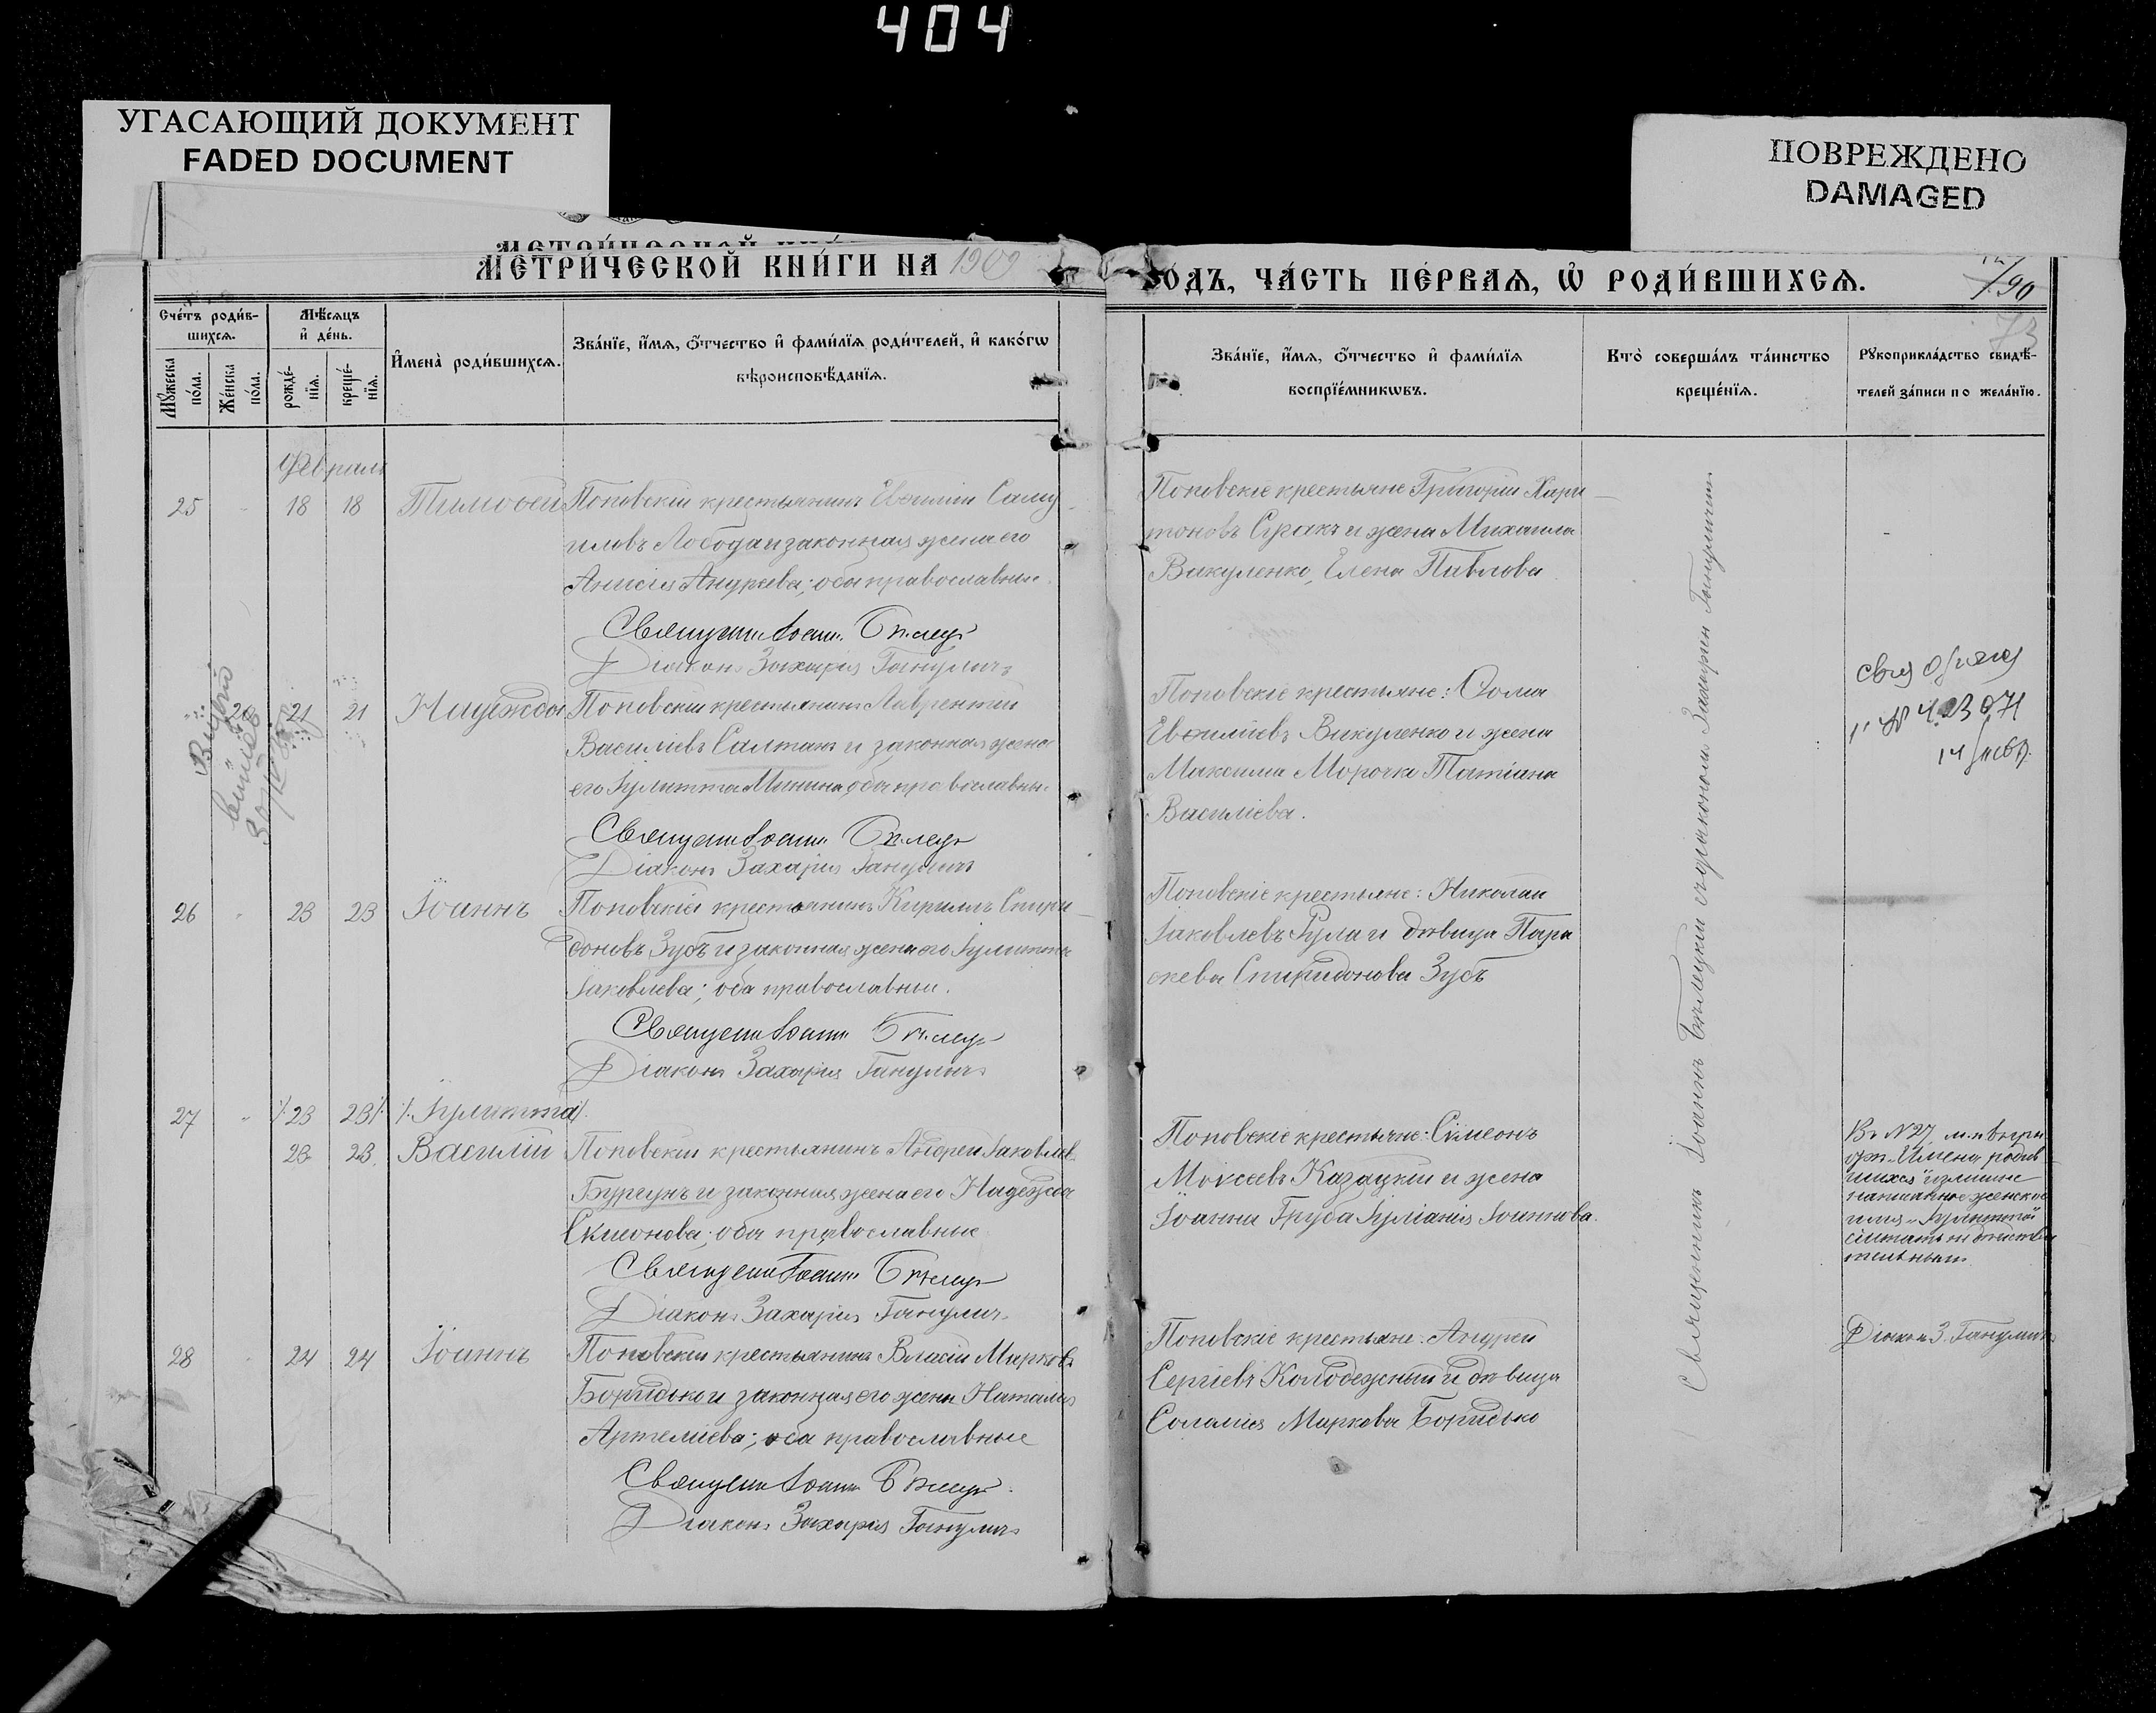 404
УГАСАЮЩИЙ ДОКУМЕНТ
FADED DOCUMENT
ПОВРЕЖДЕНО
DAMAGED
МЕТРИ́ЧЕСКОЙ КНИ́ГИ НА 1909
ОДЪ, ЧА́СТЬ ПЕ́РВАѦ, Ѡ҆ РОДИ́ВШИХСѦ.
190
73
Сче́тъ роди́в-
шихсѧ.
Мѣ́сѧцъ
и҆ де́нь.
Мꙋ́жеска
по́ла.
Же́нска
по́ла.
рожде́-
нїѧ.
креще́-
нїѧ.
И҆мена̀ роди́вшихсѧ.
Зва́нїе, и҆́мѧ, ѻ҆́тчество и҆ фами́лїѧ роди́телей, и҆ како́гѡ
вѣроисповѣ́данїѧ.
Зва́нїе, и҆́мѧ, ѻ҆́тчество и҆ фами́лїѧ
воспрїе́мникѡвъ.
Кто̀ соверша́лъ та́инство
креще́нїѧ.
Рꙋкоприкла́дство свидѣ́-
телей за́писи по жела́нїю.
Февраль
25 - 18 18 Тимоѳей
Поповскій крестьянинъ Евѳимій Саму
иловъ Лобода и законная жена его
Анисія Андреева; оба православные.
Священ Іоанн Бѣлец
Діаконъ Захарія Ганулич
Поповскіе крестьяне Григорій Хари
тоновъ Сиракъ и жена Михаила
Викуленко, Елена Павлова
21 21 Надежда
Поповскій крестьянинъ Лаврентій
Василіевъ Салтан и законная жена
его Іулитта Минина, оба православные.
Священ Іоанн Бѣлец
Діаконъ Захарія Ганулич
Поповскіе крестьяне: Ѳома
Евѳиміевъ Викуленко и жена
Максима Морочка Татіана
Василіева.
№ 423071
26 - 23 23 Іоаннъ
Поповскій крестьянинъ Кириллъ Спири
доновъ Зубъ и законная жена его Іулитта
Іаковлева; оба православные.
Священ Іоанн Бѣлец
Діаконъ Захарія Ганулич
Поповскіе крестьяне: Николай
Іаковлевъ Гула и дѣвица Пара
скева Спиридонова Зубъ
27 - /. 23 23 /. /. Іулитта /.
23 23 Василій
Поповскій крестьянинъ Андрей Іаковлев
Бургунъ и законная жена его Надежда
Симеонова; оба православные
Священ Іоанн Бѣлец
Діаконъ Захарія Ганулич
Поповскіе крестьяне: Симеонъ
Моисеевъ Казацкій и жена
Іоанна Груба Іуліанія Іоаннова.
Въ № 27 м.п. въ гра
фѣ „Имена родив
шихся" излишне
написанное женское
имя „Іулитта"
считать не дѣйстви
тельным
Діакон З. Ганулич
28 - 24 24 Іоаннъ
Поповскій крестьянинъ Власій Марков
Боридько и законная его жена Наталія
Артеміева; оба православные
Священ Іоанн Бѣлец
Діаконъ Захарія Ганулич
Поповскіе крестьяне: Андрей
Сергіевъ Колодежный и дѣвица
Соломія Маркова Боридько
Священникъ Іоаннъ Бѣлецкій съ діакономъ Захаріей Гануличем